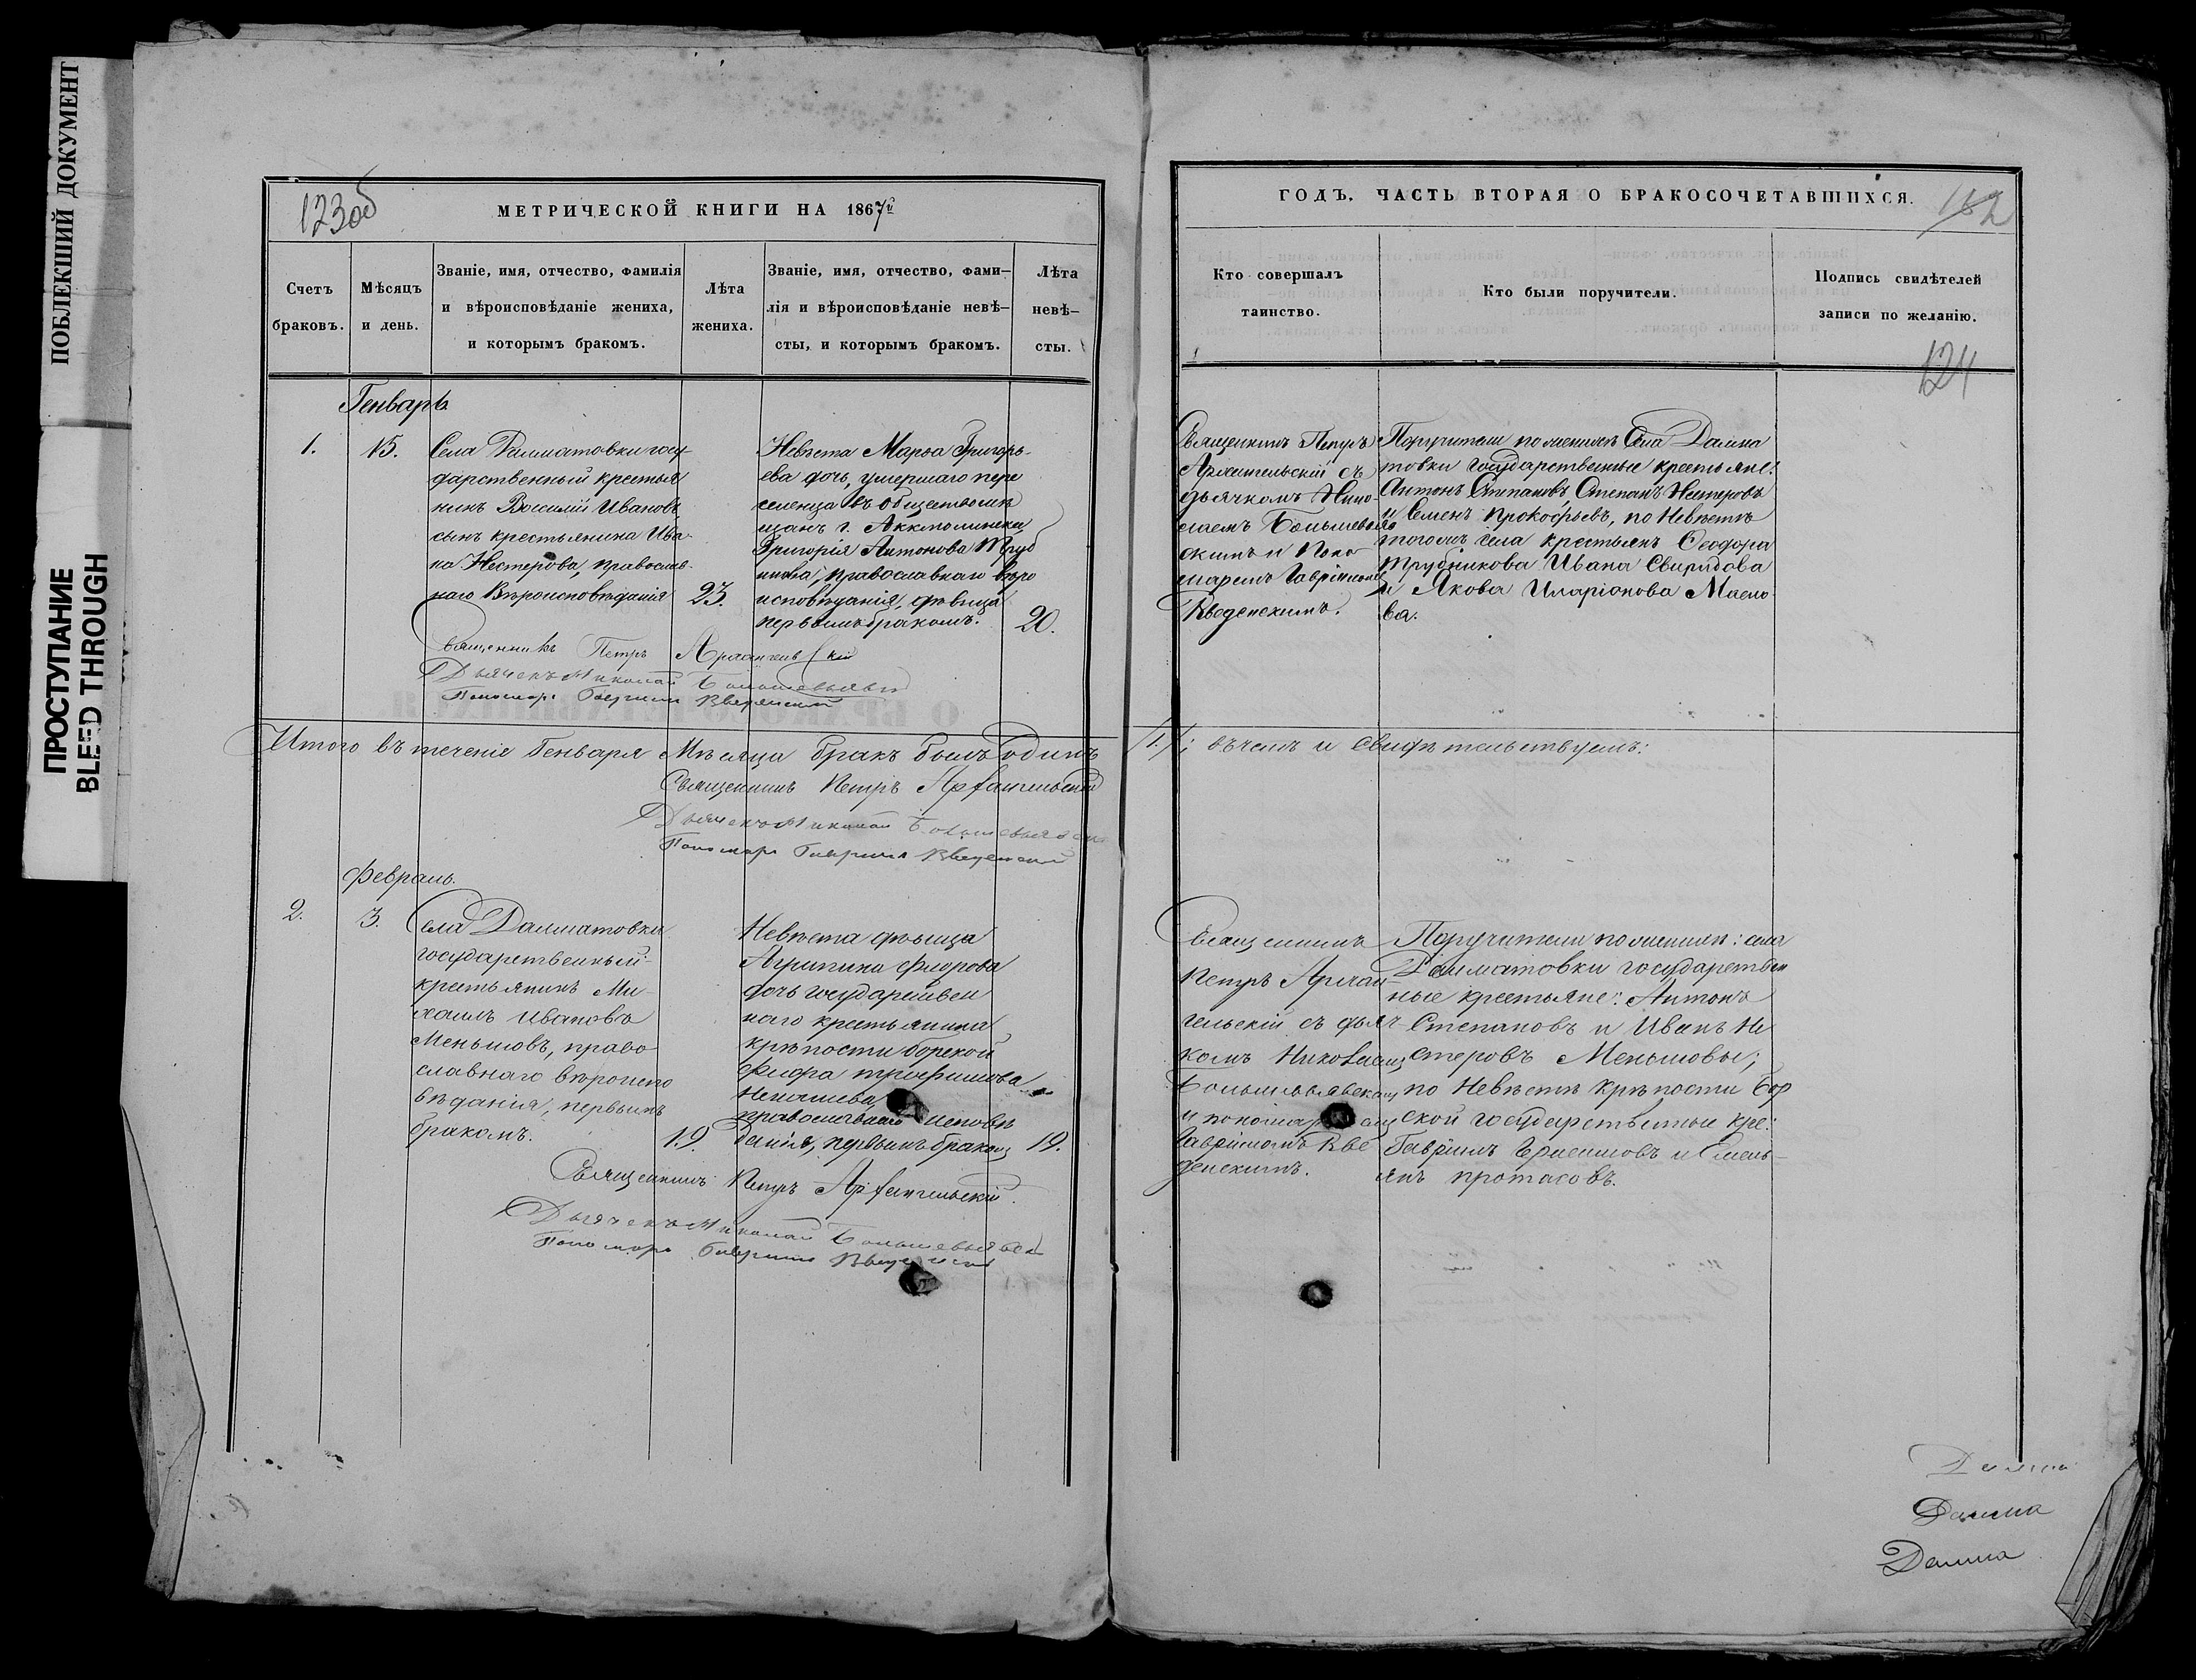 ПОБЛЕКШИЙ ДОКУМЕНТ
ПРОСТУПАНИЕ
BLEED THROUGH
123об
МЕТРИЧЕСКОЙ КНИГИ НА 1867й
Счетъ
браковъ.
Мѣсяцъ
и день.
Званіе, имя, отчество, фамилія
и вѣроисповѣданіе жениха,
и которымъ бракомъ.
Лѣта
жениха.
Званіе, имя, отчество, фами–
лія и вѣроисповѣданіе невѣ–
сты, и которымъ бракомъ.
Лѣта
невѣ–
сты.
Генварь
1.
15.
Села Далматовки госу-
дарственный крестья
нинъ Василий Ивановъ,
сынъ крестьянина Ива-
на Нестерова, православ-
наго Вѣроисповѣданія
23.
Невѣста Марѳа Григорь-
ева дочь, умершаго пере
селенца въ общество мѣ
щанъ г. Акмолинска
Григорія Антонова Труб
никова, православнаго вѣро
исповѣданія, дѣвица
первымъ бракомъ.
20.
Священникъ Петръ Архангельскій
Дьячекъ Николай
Пономарь Гавриилъ Введенский
Итого въ теченіе Генваря Мѣсяца бракъ былъ одинъ
Священникъ Петръ Архангельскій
Дьячекъ Николай
Пономарь Гавриилъ Введенский
Февраль.
2.
3.
Села Далматовки
государственный
крестьянинъ Ми-
хаилъ Ивановъ
Меньшовъ, право-
славнаго вѣроиспо
вѣданія, первымъ
бракомъ.
19.
Невѣста дѣвица
Агрипина
дочь государствен
наго крестьянина
крѣпости борской
православнаго исповѣ
данія, первымъ бракомъ
19.
Священникъ Петръ Архангельскій.
Дьячекъ Николай
Пономарь Гавриилъ Введенский
ГОДЪ. ЧАСТЬ ВТОРАЯ О БРАКОСОЧЕТАВШИХСЯ.
124
Кто совершалъ
таинство.
Кто были поручители.
Подпись свидѣтелей
записи по желанію.
Священникъ Петръ
Архангельскій съ
дьячкомъ Нико-
лаемъ
скимъ и Поно
маремъ Гавріиломъ
Введенскимъ.
Поручители по женихѣ Села Далма
товки государственные крестьяне:
Антонъ Степановъ, Степанъ Нестеровъ
и Семенъ Прокофьевъ, по Невѣстѣ
тогожъ села крестьянъ Ѳеодора
Трубникова Ивана Свиридова
и Якова Иларіонова Масло
ва.
/1./; въ чемъ и свидѣтельствуемъ:
Священникъ
Петръ Архан-
гельскій съ дьяч-
комъ Николаемъ
и пономаремъ
Гавріиломъ Вве
денскимъ.
Поручители по женихѣ: села
Далматовки государствен
ные крестьяне: Антонъ
Степановъ и Иванъ Не
стеровъ Меньшовы;
по Невѣстѣ крѣпости Бор
ской государственные кре:
Гаврiилъ и Емель-
янъ Протасовъ.
Далма
Далма
Далма